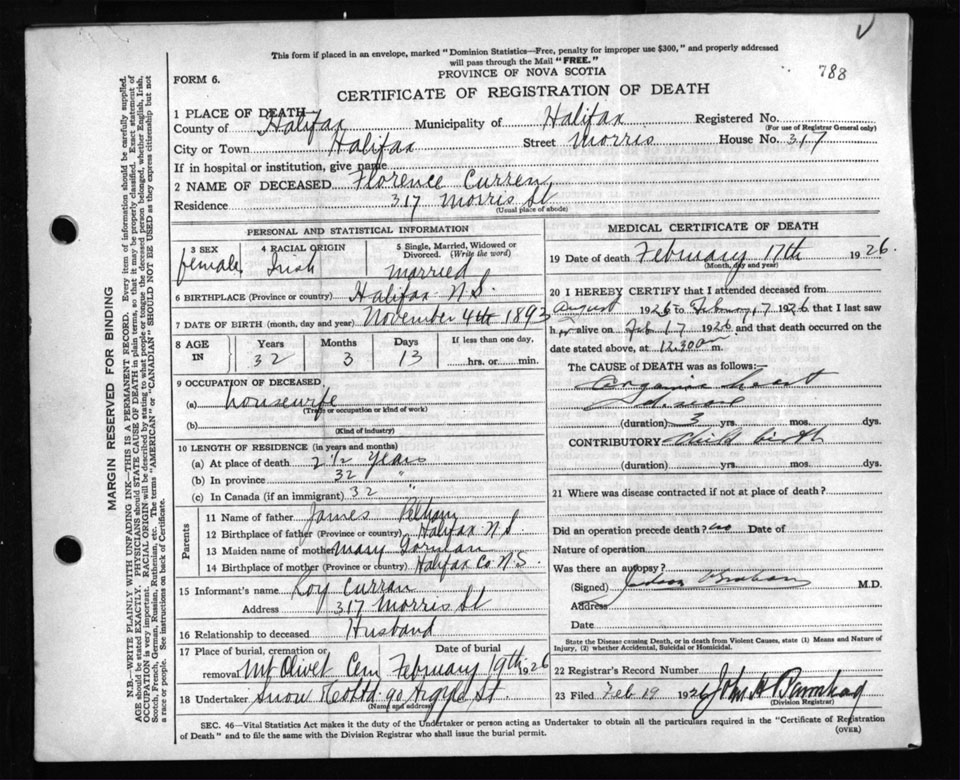 This form if placed in an envelope, marked "Dominion Statistics—Free, penalty for improper use $300," and properly addressed
will pass through the Mail "FREE."
788
FORM 6.
PROVINCE OF NOVA SCOTIA
CERTIFICATE OF REGISTRATION OF DEATH
1 PLACE OF DEATH
County of Halifax Municipality of Halifax Registered No.
(For use of Registrar General only)
City or Town Halifax Street Morris House No. 317
If in hospital or institution, give name
2 NAME OF DECEASED Florence Curren
Residence 317 Morris St
(Usual place of abode)
PERSONAL AND STATISTICAL INFORMATION
3 SEX 4 RACIAL ORIGIN 5 Single, Married, Widowed or
Divorced. (Write the word)
female Irish married
6 BIRTHPLACE (Province or country) Halifax N.S.
7 DATE OF BIRTH (month, day and year) November 4th 1893
8 AGE IN Years Months Days If less than one day,
32 3 13 hrs. or min.
9 OCCUPATION OF DECEASED
(a) Housewife
(Trade or occupation or kind of work)
(b)
(Kind of industry)
10 LENGTH OF RESIDENCE (in years and months)
(a) At place of death 2 1/2 Years
(b) In province 32 "
(c) In Canada (if an immigrant) 32 "
Parents
11 Name of father James Pelham
12 Birthplace of father (Province or country) Halifax N.S
13 Maiden name of mother Mary Gorman
14 Birthplace of mother (Province or country) Halifax Co N.S.
15 Informant's name Roy Curran
Address 317 Morris St
16 Relationship to deceased Husband
17 Place of burial, cremation or Date of burial
removal Mt Olivet Cem February 19th 1926
18 Undertaker Snow & Co Ltd. 90 Argyle St.
(Name and address)
MEDICAL CERTIFICATE OF DEATH
19 Date of death February 17th 1926.
(Month, day and year)
20 I HEREBY CERTIFY that I attended deceased from
August 1926 to February 17 1926 that I last saw
h er alive on Feb 17 1926 and that death occurred on the
date stated above, at 12.30 am m.
The CAUSE of DEATH was as follows:
Organic heart
disease
(duration) 3 yrs. mos. dys.
CONTRIBUTORY child birth
(duration) yrs. mos. dys.
21 Where was disease contracted if not at place of death?
Did an operation precede death? no Date of
Nature of operation
Was there an autopsy?
(Signed) M.D.
Address
Date
State the Disease causing Death, or in death from Violent Causes, state (1) Means and Nature of
Injury, (2) whether Accidental, Suicidal or Homicidal.
22 Registrar's Record Number
23 Filed Feb 19 1926 John H
(Division Registrar)
SEC. 46—Vital Statistics Act makes it the duty of the Undertaker or person acting as Undertaker to obtain all the particulars required in the "Certificate of Registration
of Death" and to file the same with the Division Registrar who shall issue the burial permit.
(OVER)
MARGIN RESERVED FOR BINDING
N.B.—WRITE PLAINLY WITH UNFADING INK—THIS IS A PERMANENT RECORD. Every item of information should be carefully supplied.
AGE should be stated EXACTLY. PHYSICIANS should STATE CAUSE OF DEATH in plain terms, so that it may be properly classified. Exact statement of
OCCUPATION is very important. RACIAL ORIGIN will be described by stating to what people or tongue the deceased person belonged, whether English, Irish,
Scotch, French, German, Russian, Ruthenian, etc. The terms "AMERICAN" or "CANADIAN" SHOULD NOT BE USED as they express citizenship but not
a race or people. See instructions on back of Certificate.